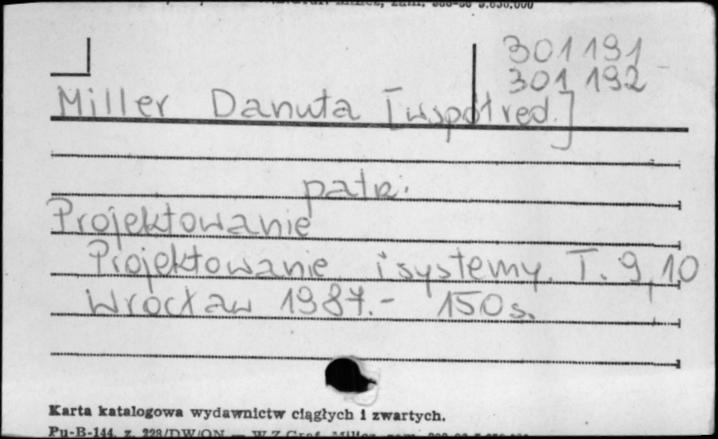 301191
301 192
Miller Danuta [współred.]
patrz:
Projektowanie
Projektowanie i systemy. T. 9,10
Wrocław 1987.- 150 s.
Karta katalogowa wydawnictw ciągłych i zwartych.
Pu-B-144, z. 228/DW/ON — W.Z.Graf.